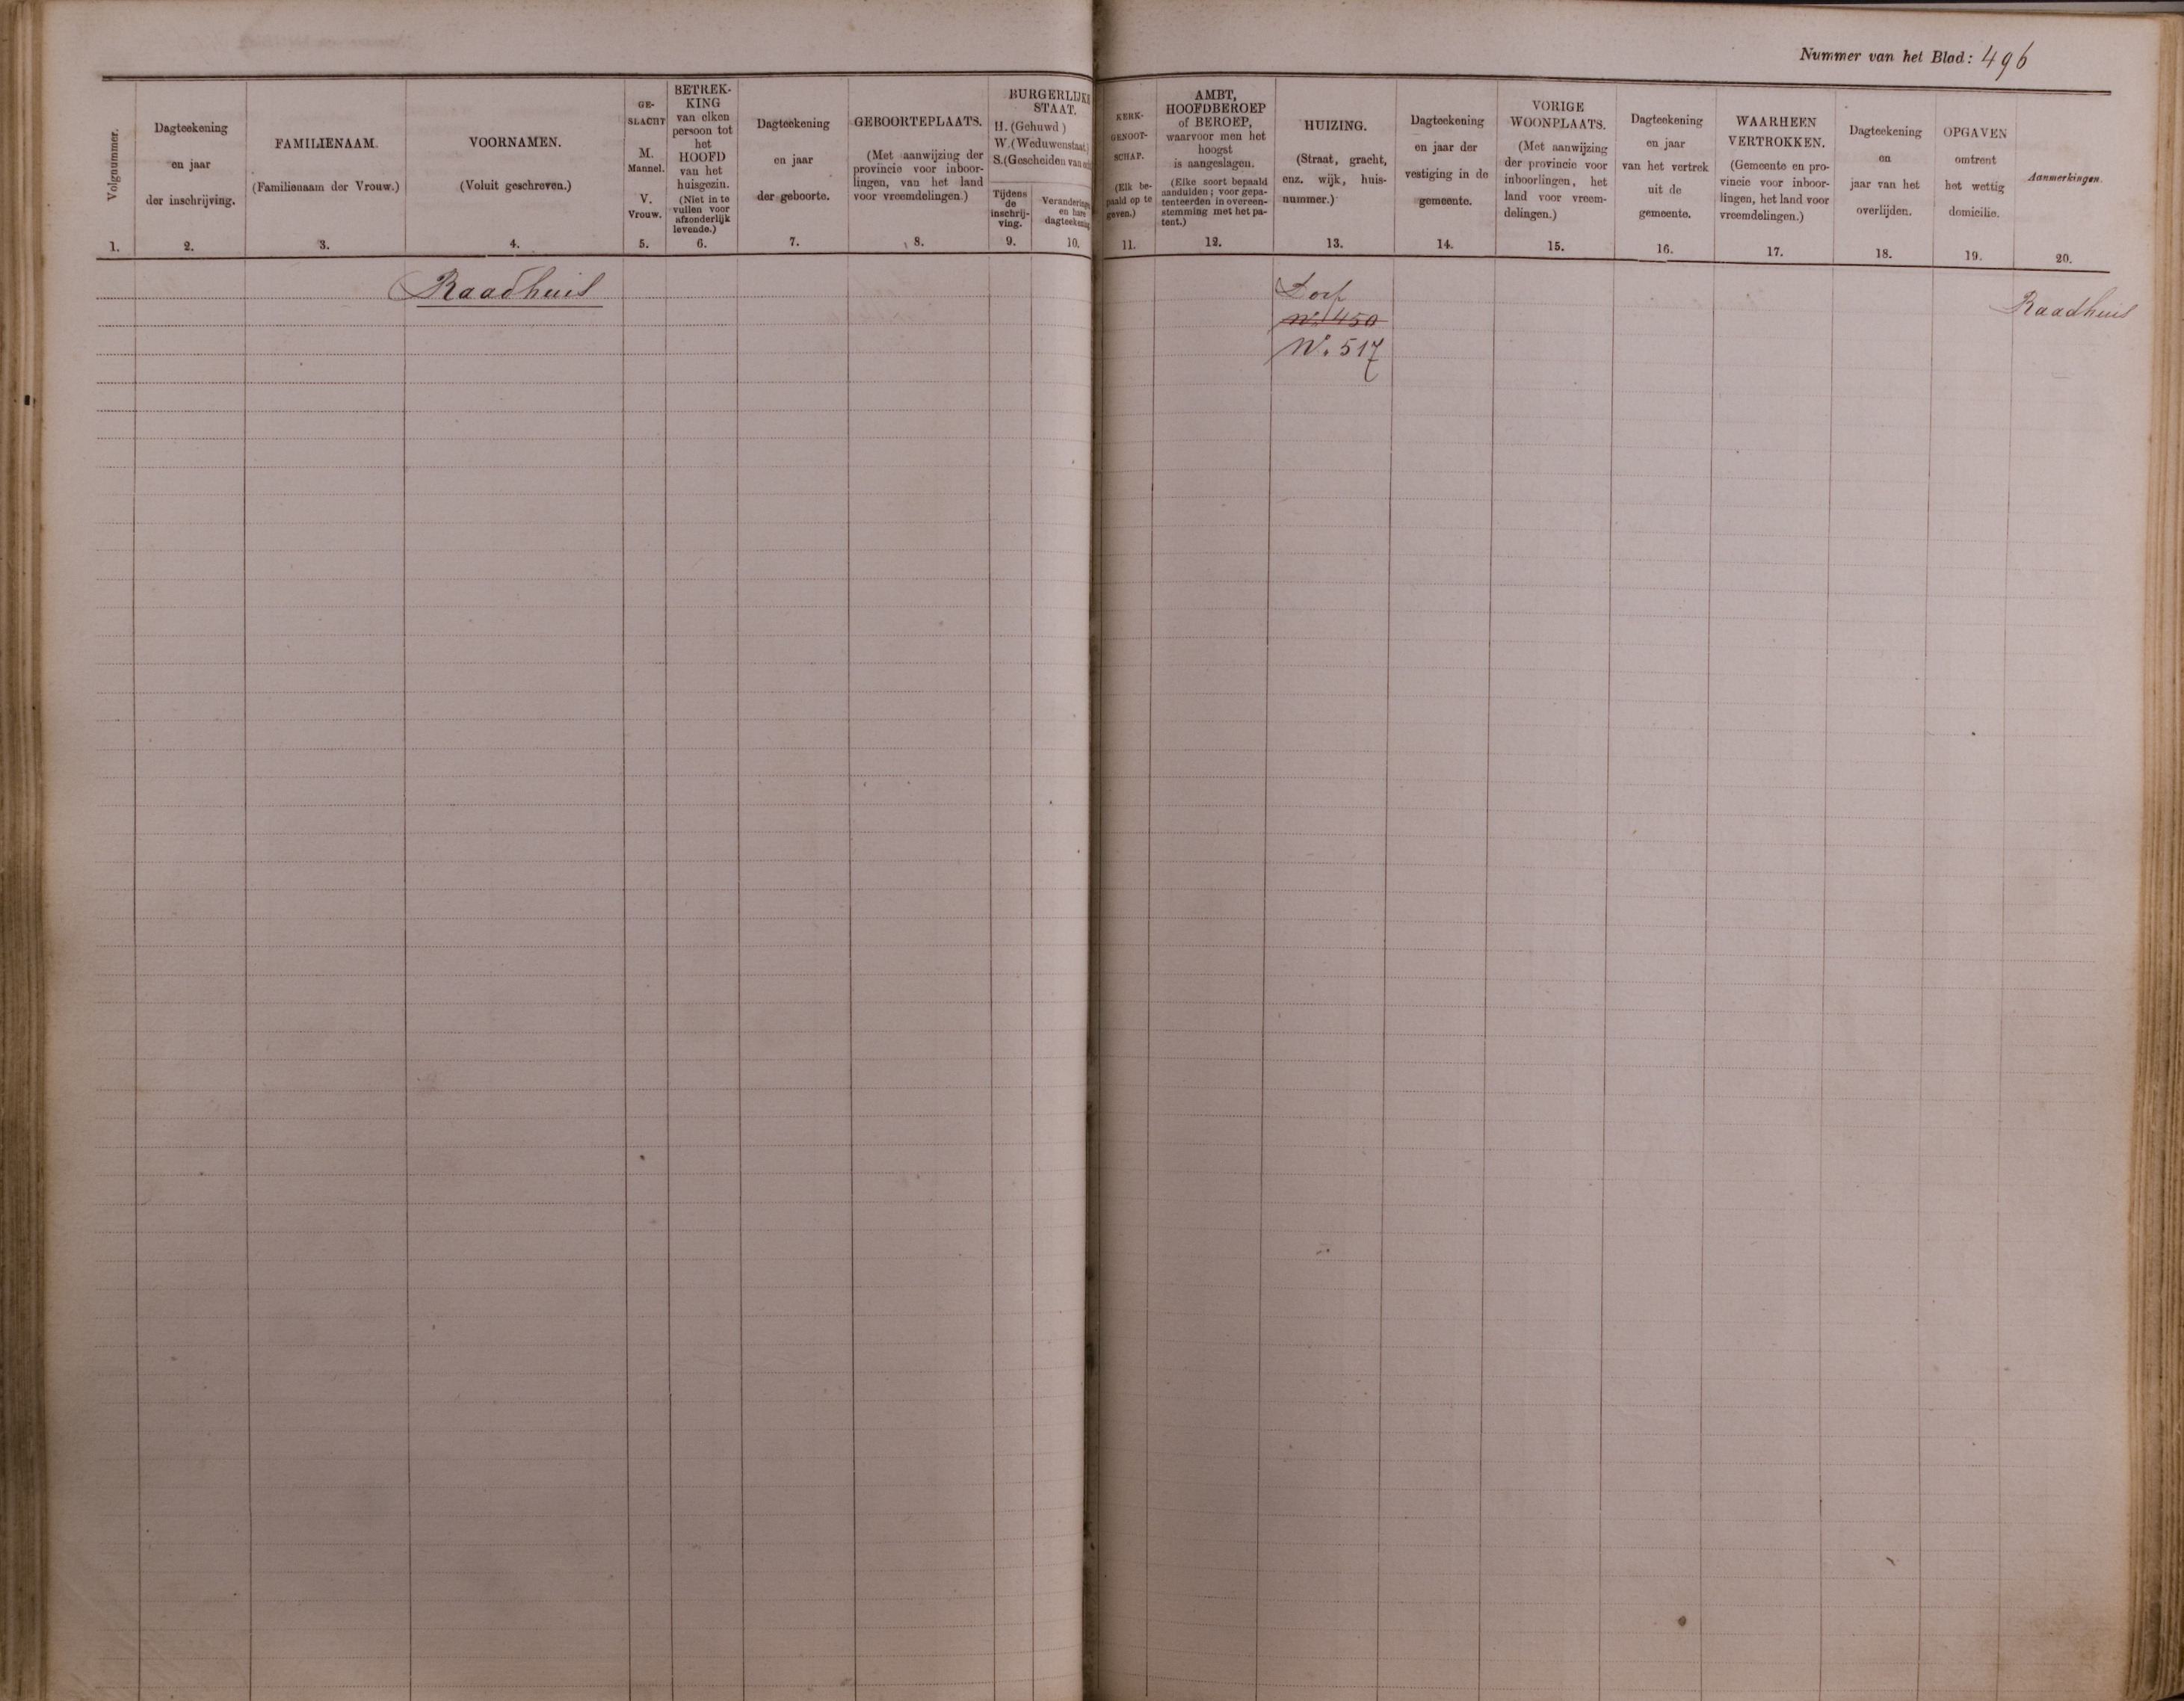 Nummer van het Blad: 496
Volgnummer.
1.
Dagteekening
en jaar
der inschrijving.
2.
FAMILIENAAM.
(Familienaam der Vrouw.)
3.
VOORNAMEN.
(Voluit geschreven.)
4.
GE-
SLACHT
M.
Mannel.
V.
Vrouw.
5.
BETREK-
KING
van elken
persoon tot
het
HOOFD
van het
huisgezin.
(Niet in te
vullen voor
afzonderlijk
levende.)
6.
Dagteekening
en jaar
der geboorte.
7.
GEBOORTEPLAATS.
(Met aanwijzing der
provincie voor inboor-
lingen, van het land
voor vreemdelingen.)
8.
BURGERLIJKE
STAAT.
H. (Gehuwd )
W. (Weduwenstaat.)
S. (Gescheiden van
Tijdens
de
inschrij-
ving.
9.
Veranderingen
en hare
dagteekening
10.
KERK-
GENOOT-
SCHAP.
(Elk be-
paald op te
geven.)
11.
AMBT,
HOOFDBEROEP
of BEROEP,
waarvoor men het
hoogst
is aangeslagen.
(Elke soort bepaald
aanduiden; voor gepa-
tenteerden in overeen-
stemming met het pa-
tent.)
12.
HUIZING.
(Straat, gracht,
enz. wijk, huis-
nummer.)
13.
Dagteekening
en jaar der
vestiging in de
gemeente.
14.
VORIGE
WOONPLAATS.
(Met aanwijzing
der provincie voor
inboorlingen, het
land voor vreem-
delingen.)
15.
Dagteekening
en jaar
van het vertrek
uit de
gemeente.
16.
WAARHEEN
VERTROKKEN.
(Gemeente en pro-
vincie voor inboor-
lingen, het land voor
vreemdelingen.)
17.
Dagteekening
en
jaar van het
overlijden.
18.
OPGAVEN
omtrent
het wettig
domicilie.
19.
Aanmerkingen.
20.
Raadhuis
Dorp
No. 450
No. 517
Raadhuis